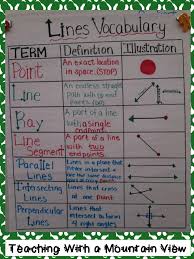 Lines Vocabulary
TERM Definition Illustration
Point
An exact location
in space. (STOP)
Line
An endless straight
path with
Ray
A part of a line
with a single
endpoint.
Line
Segment
A part of a line
with two
endpoints
Parallel
Lines
Lines in a plane that
never intersect
the same
distance
Intersecting
Lines
Lines that cross
at one point
Perpendicular
Lines
Lines that
intersect to form
4 right angles
Teaching With a Mountain View